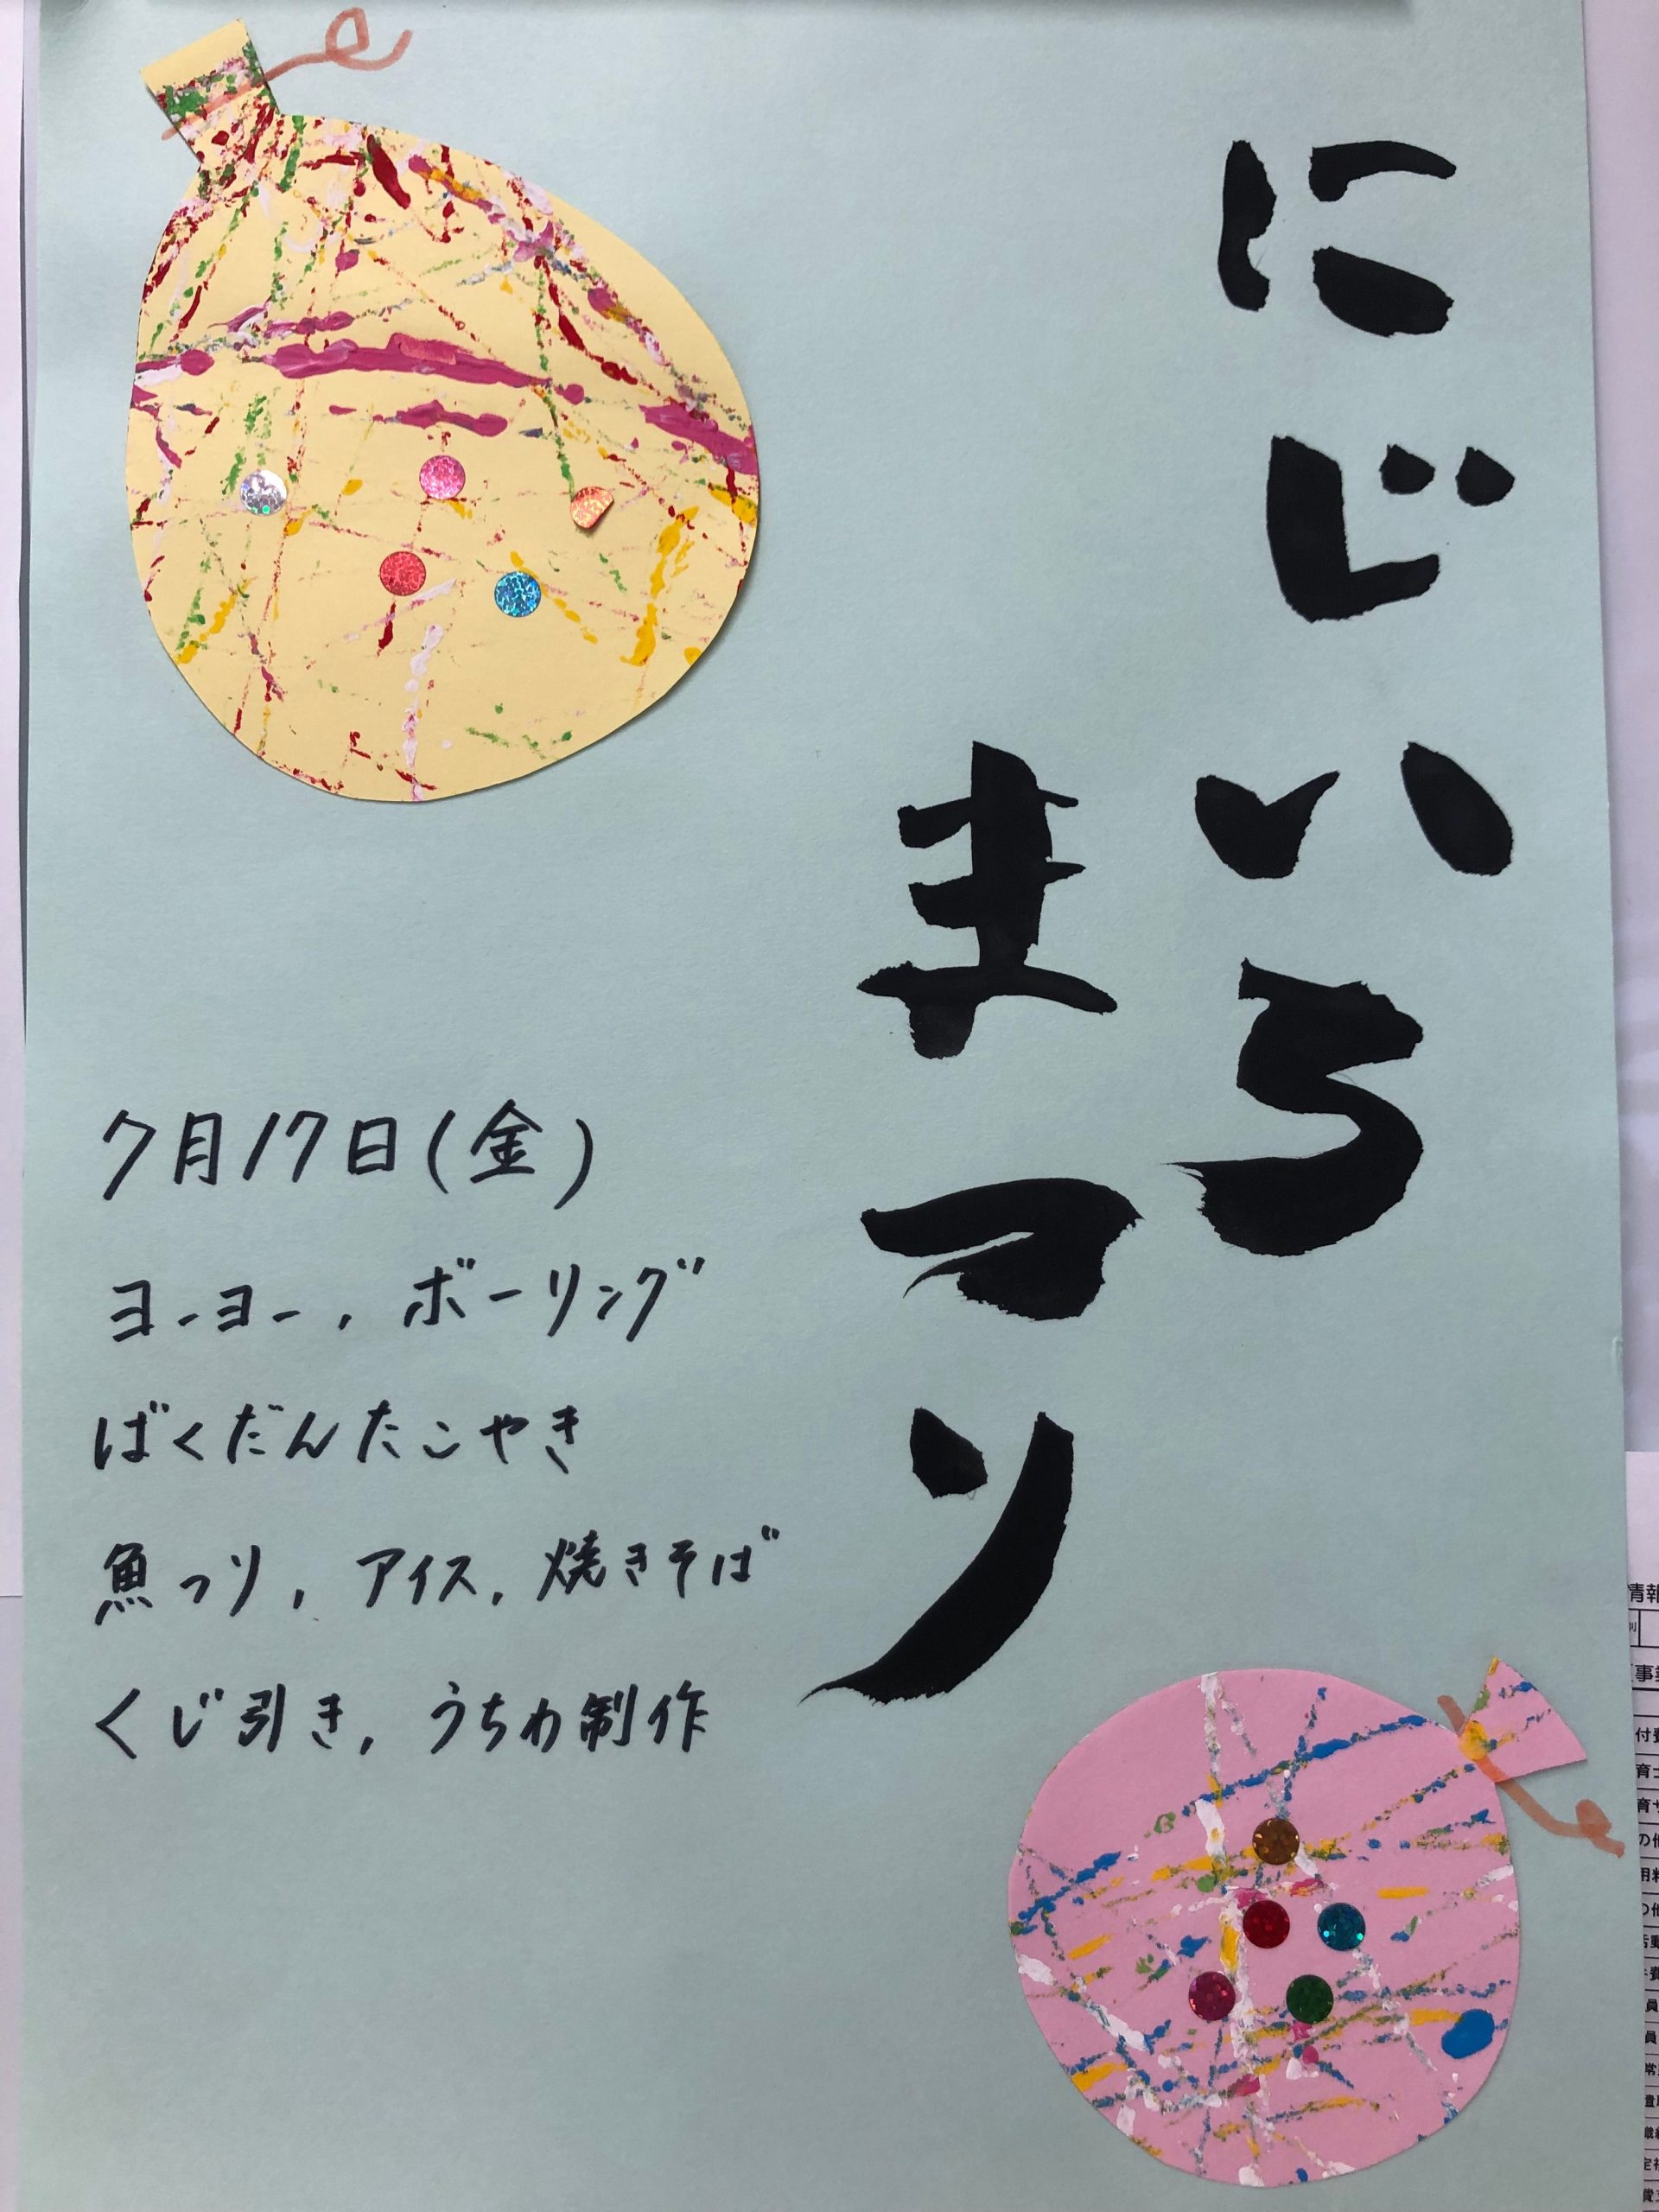 にじいろ
まつり
7月17日(金)
ヨーヨー，ボーリング
ばくだんたこやき
魚つり，アイス，焼きそば
くじ引き，うちわ制作
情報
事業
付費